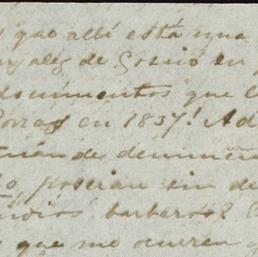 que allí está una
de Gossió en
documentos que l
Porras en 1837! Ad
de denuncia
lo poseían sin de
indios barbaros?
que me ocurren y